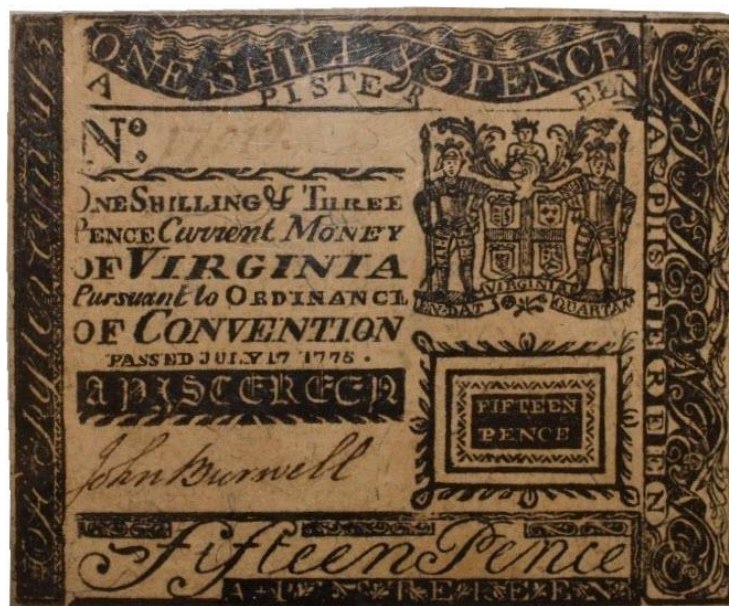 ONE SHILL. & 3 PENCE
A PISTEREEN
No:
ONE SHILLING & THREE
PENCE Current MONEY
OF VIRGINIA
Pursuant to ORDINANCE
OF CONVENTION
PASSED JULY 17 1775.
A PISTEREEN
John Burwell
VIRGINIA
EN DAT QUARTAM
FIFTEEN
PENCE
Fifteen Pence
A PISTEREEN
A PISTEREEN